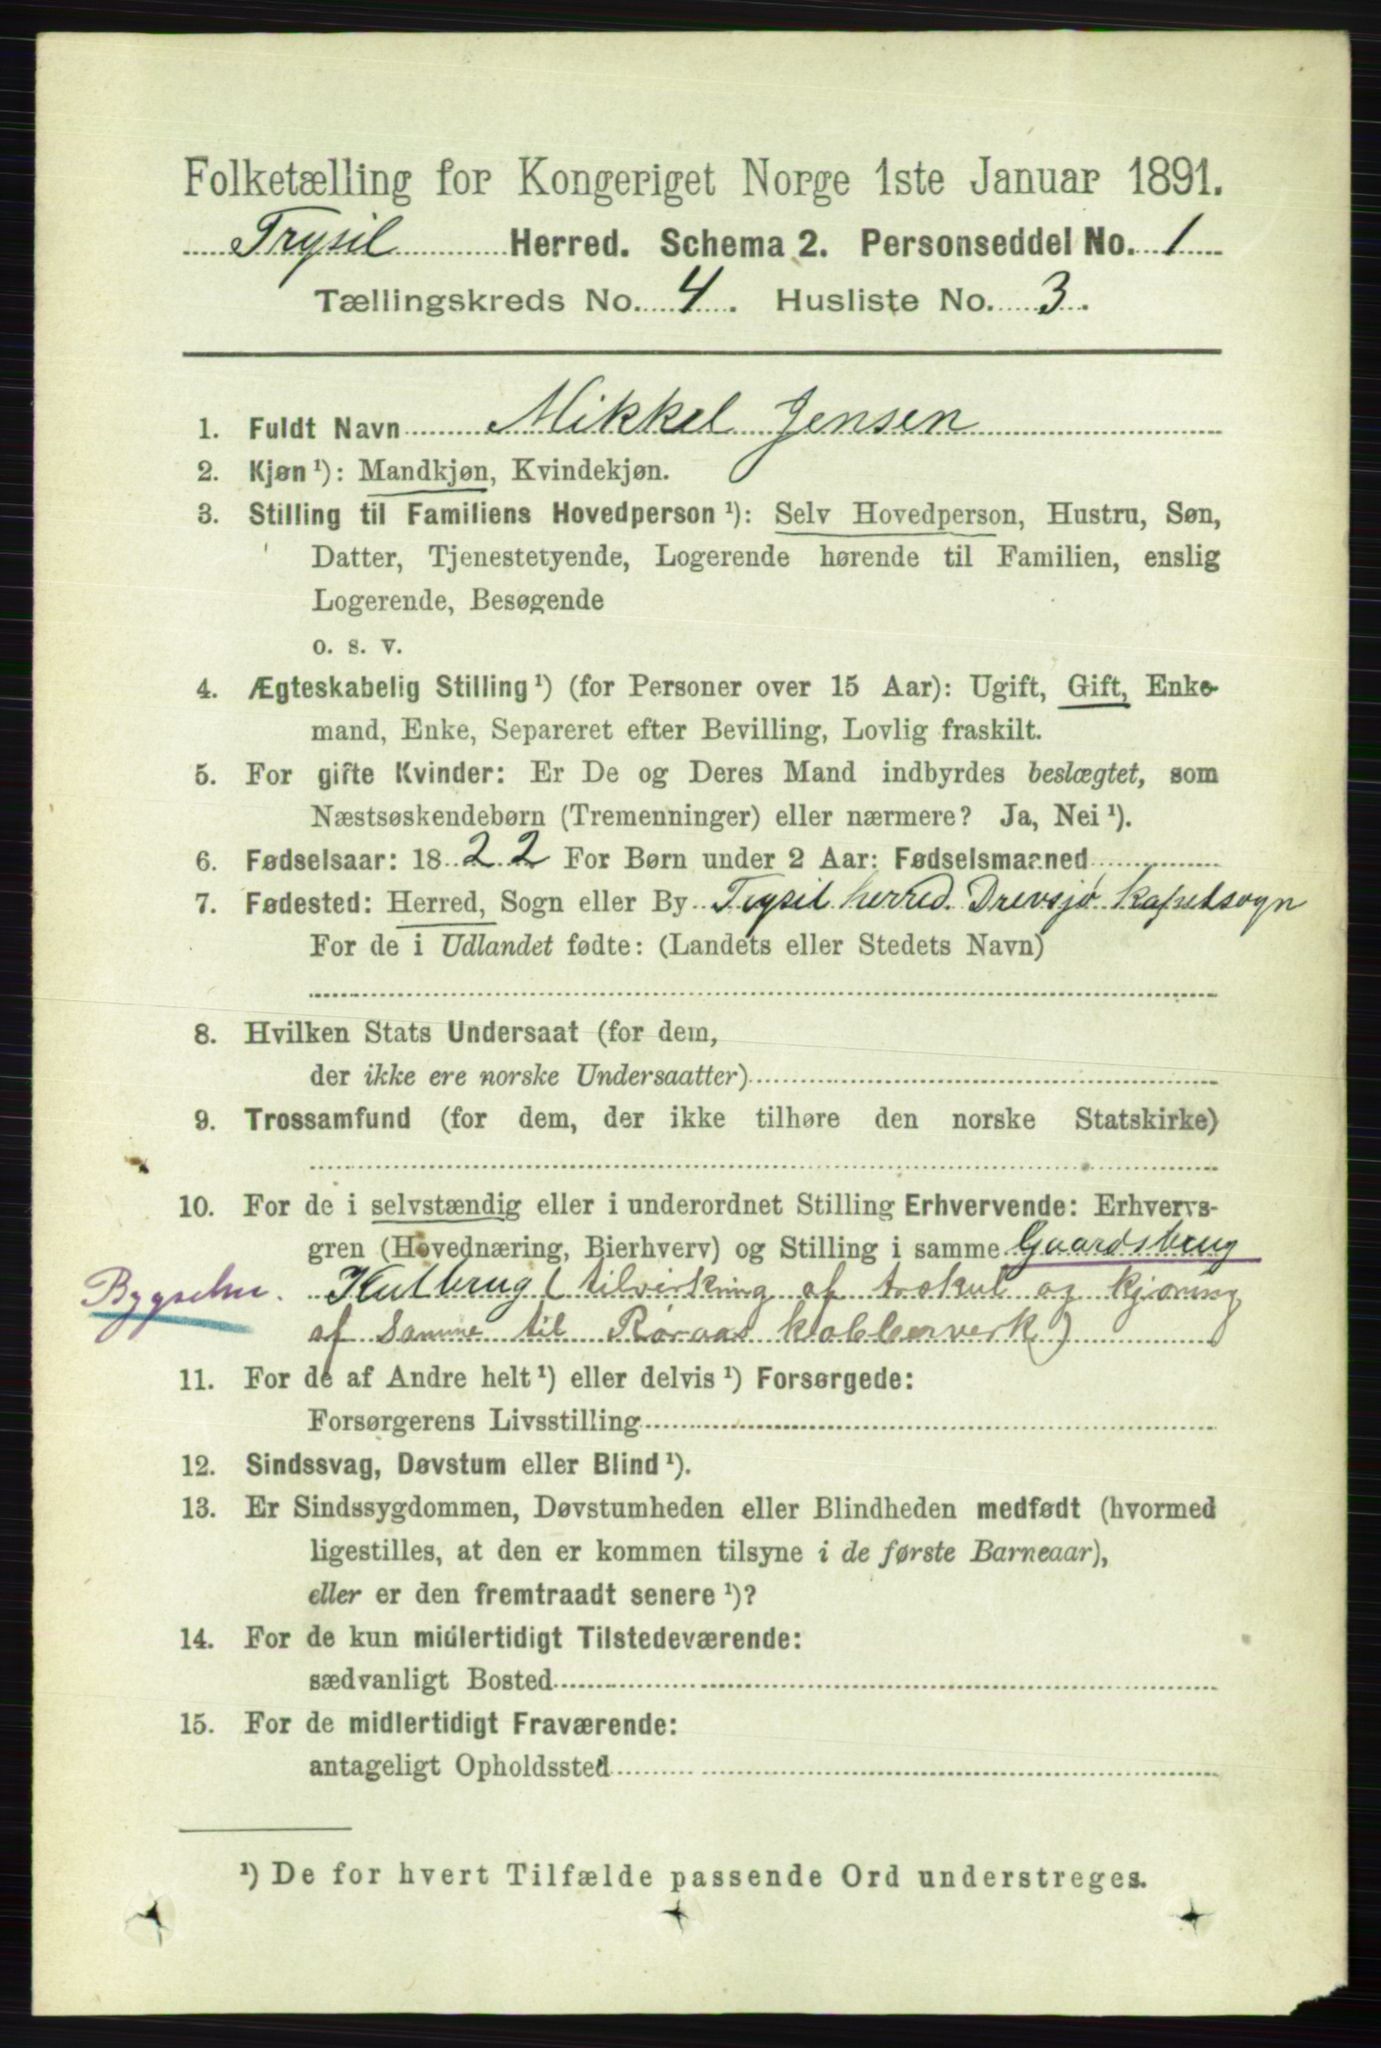 Folketælling for Kongeriget Norge 1ste Januar 1891.
Trysil Herred. Schema 2. Personseddel No. 1
Tællingskreds No. 4. Husliste No. 3.
1. Fuldt Navn Mikkel Jensen
2. Kjøn ¹): Mandkjøn, Kvindekjøn.
3. Stilling til Familiens Hovedperson ¹): Selv Hovedperson, Hustru, Søn,
Datter, Tjenestetyende, Logerende hørende til Familien, enslig
Logerende, Besøgende
o. s. v.
4. Ægteskabelig Stilling ¹) (for Personer over 15 Aar): Ugift, Gift, Enke-
mand, Enke, Separeret efter Bevilling, Lovlig fraskilt.
5. For gifte Kvinder: Er De og Deres Mand indbyrdes beslægtet, som
Næstsøskendebørn (Tremenninger) eller nærmere? Ja, Nei ¹).
6. Fødselsaar: 1822 For Børn under 2 Aar: Fødselsmaaned
7. Fødested: Herred, Sogn eller By Trysil herred. Drevsjø kapelsogn
For de i Udlandet fødte: (Landets eller Stedets Navn)
8. Hvilken Stats Undersaat (for dem,
der ikke ere norske Undersaatter)
9. Trossamfund (for dem, der ikke tilhøre den norske Statskirke)
10. For de i selvstændig eller i underordnet Stilling Erhvervende: Erhvervs-
gren (Hovednæring, Bierhverv) og Stilling i samme Gaardsbrug
Bygselm. Kulbrug (tilvirkning af trækul og kjøring
af samme til Røraas kobberverk)
11. For de af Andre helt ¹) eller delvis ¹) Forsørgede:
Forsørgerens Livsstilling
12. Sindssvag, Døvstum eller Blind ¹).
13. Er Sindssygdommen, Døvstumheden eller Blindheden medfødt (hvormed
ligestilles, at den er kommen tilsyne i de første Barneaar),
eller er den fremtraadt senere ¹)?
14. For de kun midlertidigt Tilstedeværende:
sædvanligt Bosted
15. For de midlertidigt Fraværende:
antageligt Opholdssted
¹) De for hvert Tilfælde passende Ord understreges.